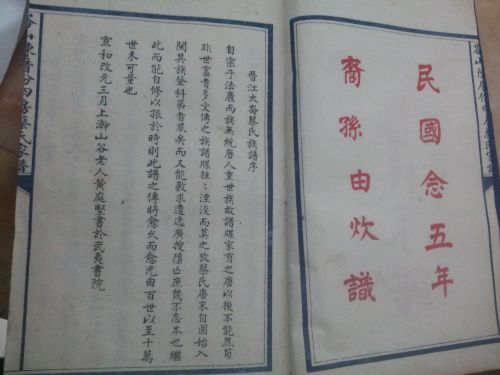 民國念五年
裔孫由炊識
晉江大畬蔡氏族譜序
自宗子法廢而族無統唐人重世族故譜牒家有之唐以後不能然茍
非世富貴多文傳之族譜牒往〻湮沒而莫之攷蔡氏唐末自固始入
閩其族登科第者最矣而又能數求遺迹廣搜墮亾庶幾不忘本也繼
此而能自修以振於時則此譜之傳將愈久而愈光由百世以至千萬
世未可量也
宣和改元三月上澣山谷老人黃庭堅書於武夷書院